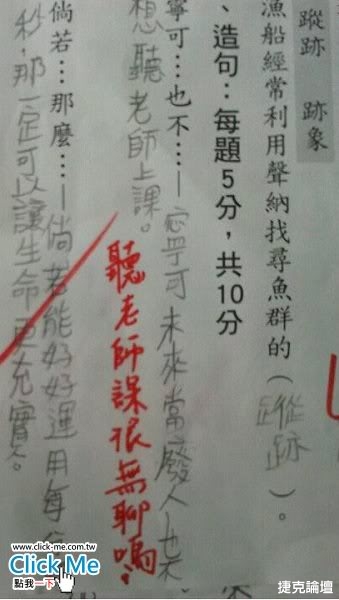 蹤跡　跡象
漁船經常利用聲納找尋魚群的（蹤跡）。
、造句：每題5分，共10分
寧可…也不…—寧可未來當廢人也不
想聽老師上課。
聽老師課很無聊嗎?
倘若…那麼…—倘若能好好運用每
秒，那一定可以讓生命更充實。
www.click-me.com.tw
Click-Me
點我一下
捷克論壇